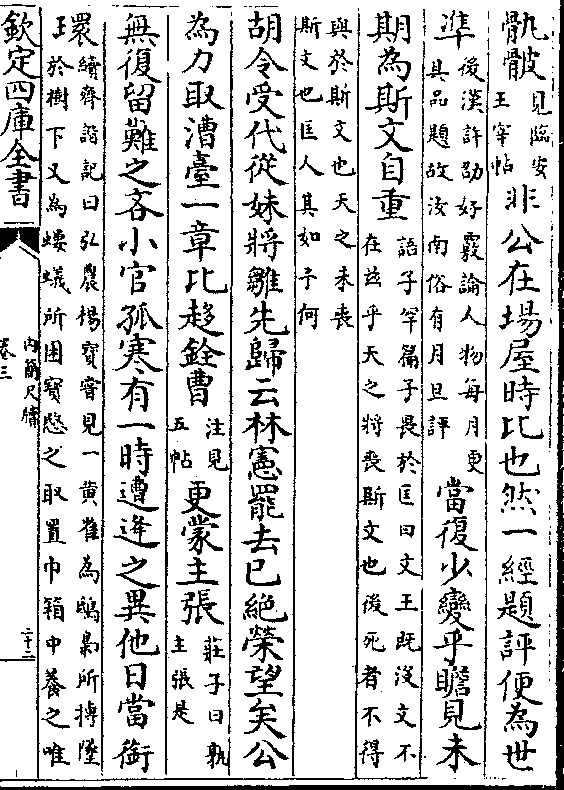 骫骳見臨安王宰帖非公在場屋時比也然一經題評便為世
準後漢許劭好覈論人物每月更具品題故汝南俗有月旦評當復少變乎瞻見未
期為斯文自重語子罕篇子畏於匡曰文王既沒文不在兹乎天之將喪斯文也後死者不得
與於斯文也天之未喪斯文也匡人其如予何
胡令受代從妹將雛先歸云林憲罷去已絶榮望矣公
為力取漕臺一章比趍銓曹注見五帖更蒙主張莊子曰孰主張是
無復留難之吝小官孤寒有一時遭逄之異他日當銜
環續齊諧記曰弘農楊寳嘗見一黄雀為鴟梟所摶墜於樹下又為螻蟻所困寳愍之取置巾箱中養之唯
欽定四庫全書
內簡尺牘
卷三
二十二